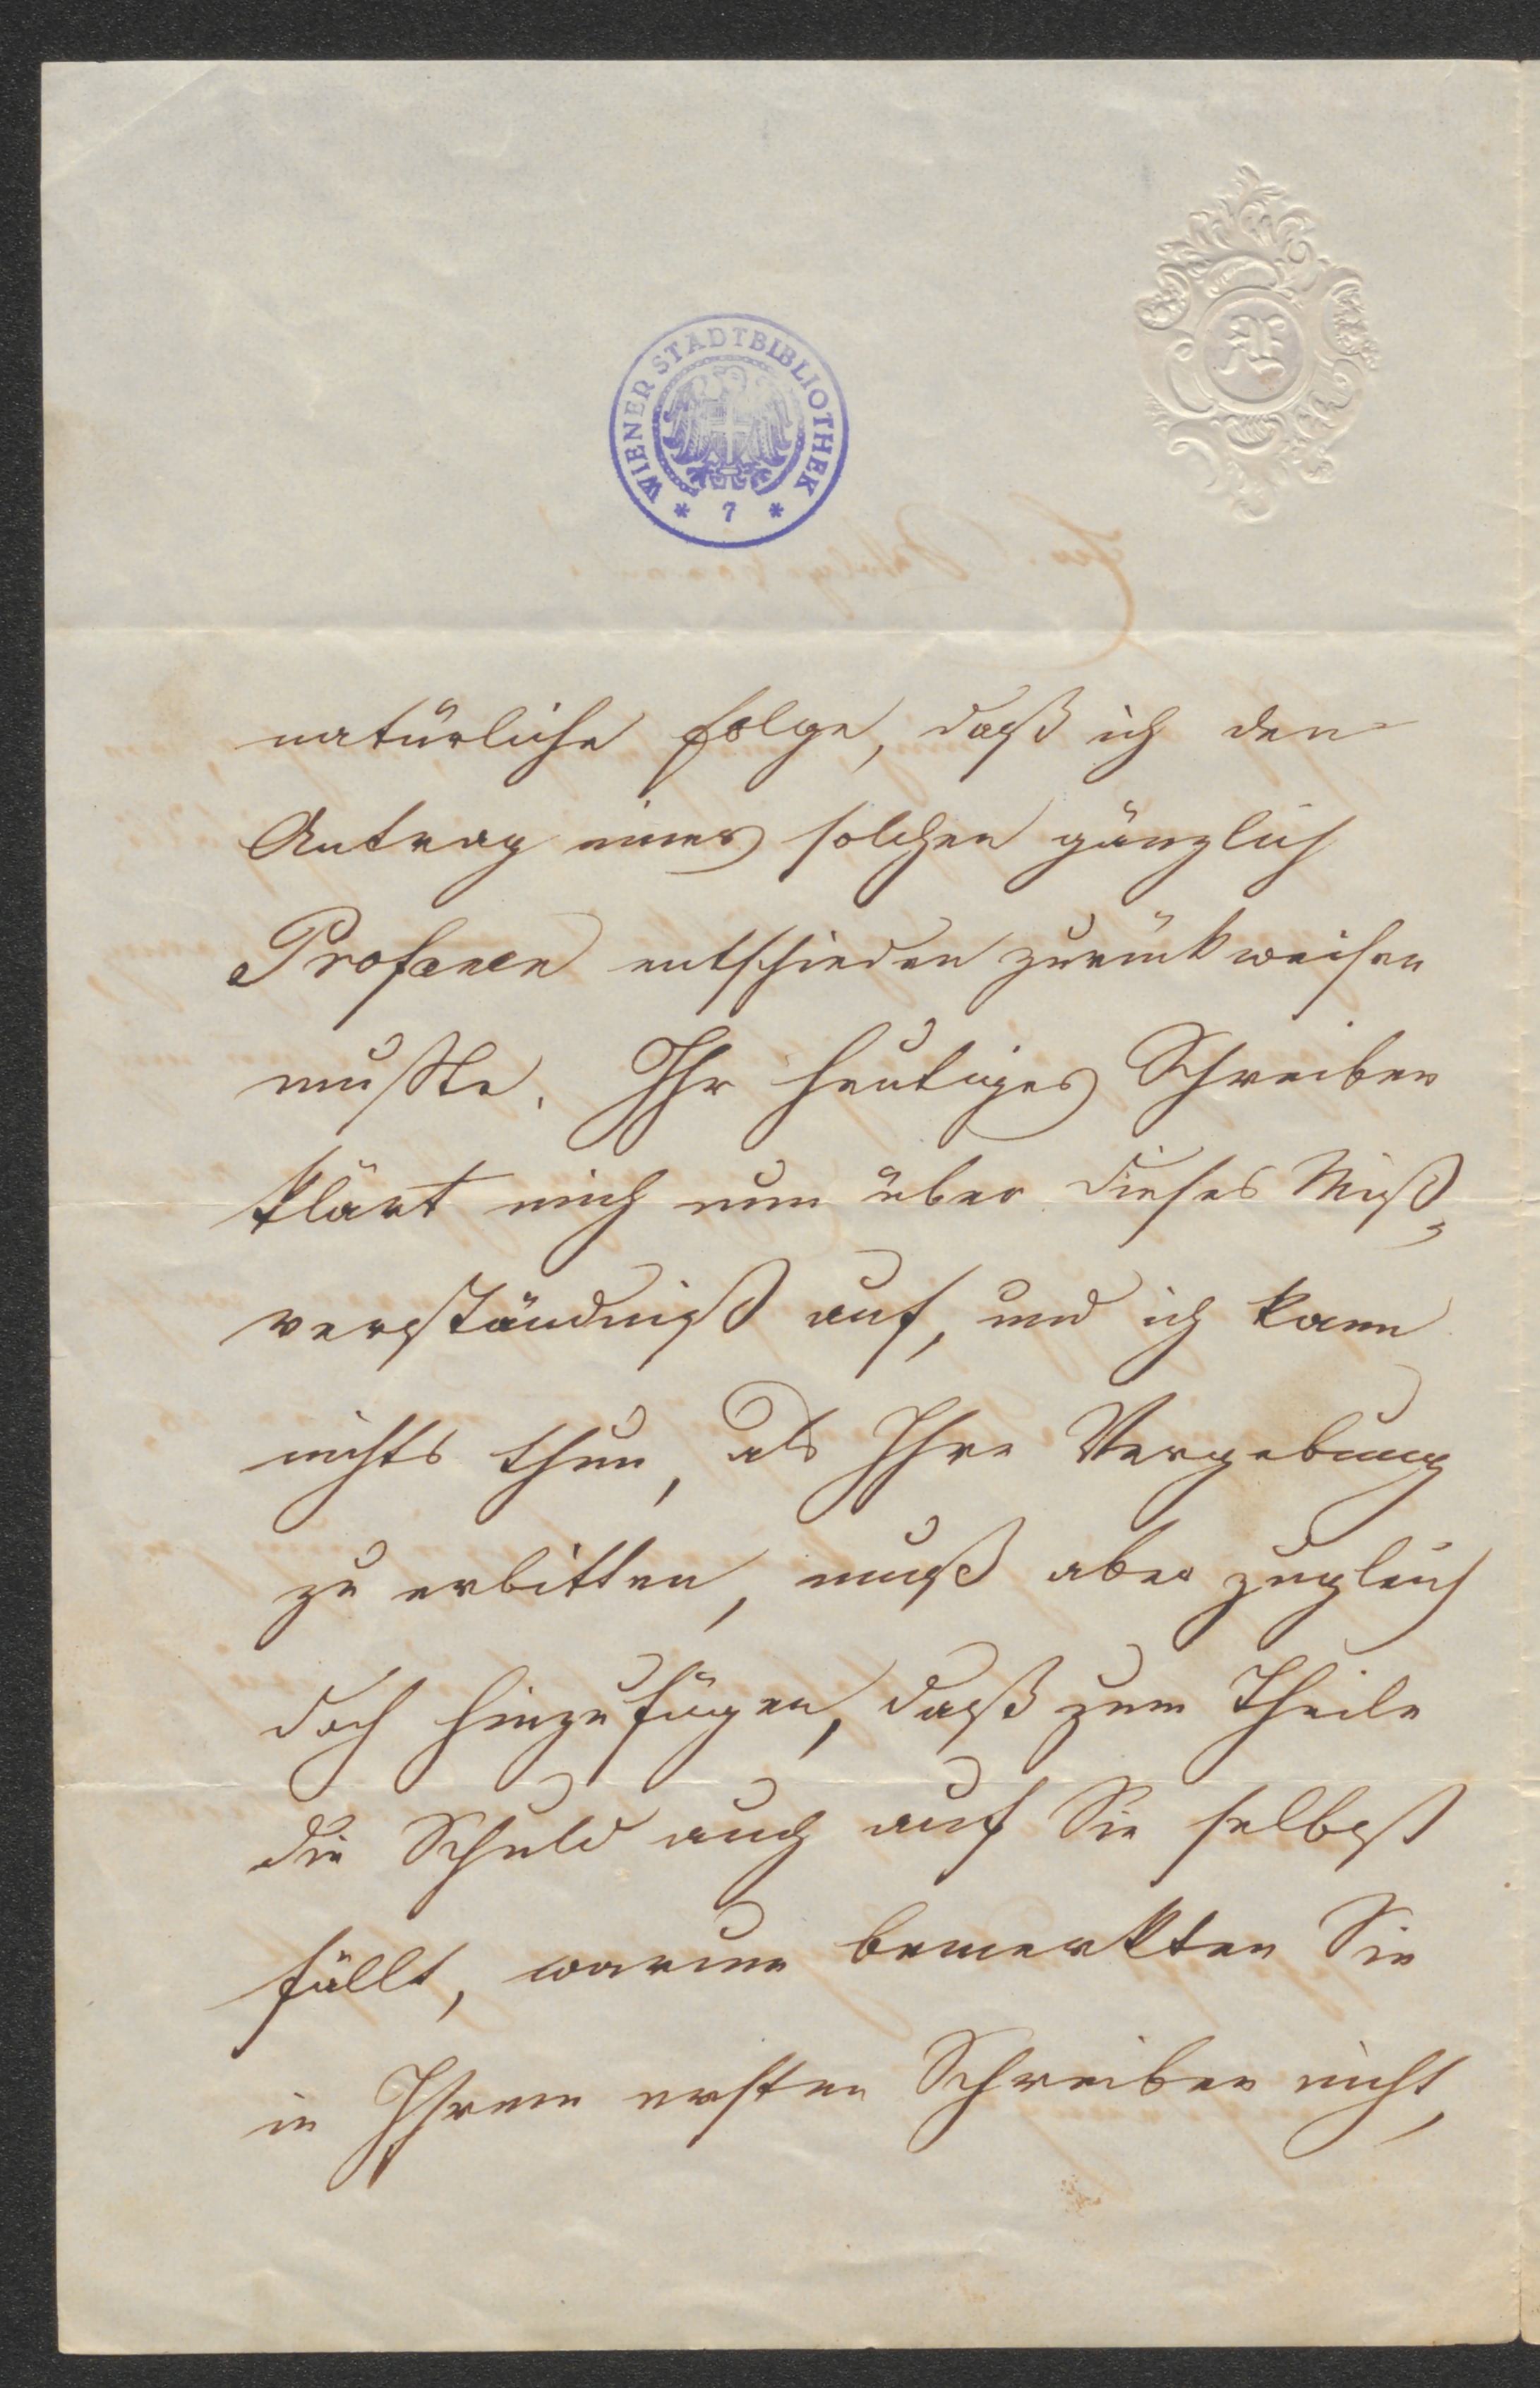 WIENER STADTBIBLIOTHEK
* 7 *
natürliche Folge, daß ich den
Antrag eines solchen gänzlich
Profanen entschieden zurückweisen
mußte. Ihr heutiges Schreiben
klärt mich nun über dieses Miß„
verständniß auf, und ich kann
nichts thun, als Ihre Vergebung
zu erbitten, muß aber zugleich
doch hinzufügen, daß zum Theile
die Schuld auch auf Sie selbst
fällt, warum bemerkten Sie
in Ihrem ersten Schreiben nicht,